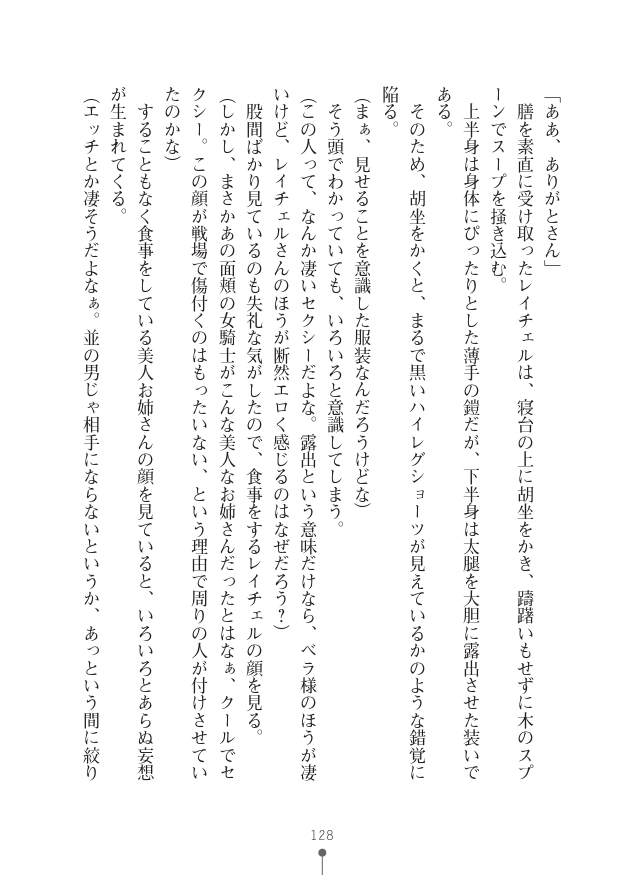 「ああ、ありがとさん」
　膳を素直に受け取ったレイチェルは、寝台の上に胡坐をかき、躊躇いもせずに木のスプ
ーンでスープを掻き込む。
　上半身は身体にぴったりとした薄手の鎧だが、下半身は太腿を大胆に露出させた装いで
ある。
　そのため、胡坐をかくと、まるで黒いハイレグショーツが見えているかのような錯覚に
陥る。
（まぁ、見せることを意識した服装なんだろうけどな）
　そう頭でわかっていても、いろいろと意識してしまう。
（この人って、なんか凄いセクシーだよな。露出という意味だけなら、ベラ様のほうが凄
いけど、レイチェルさんのほうが断然エロく感じるのはなぜだろう？）
　股間ばかり見ているのも失礼な気がしたので、食事をするレイチェルの顔を見る。
（しかし、まさかあの面頬の女騎士がこんな美人なお姉さんだったとはなぁ、クールでセ
クシー。この顔が戦場で傷付くのはもったいない、という理由で周りの人が付けさせてい
たのかな）
　することもなく食事をしている美人お姉さんの顔を見ていると、いろいろとあらぬ妄想
が生まれてくる。
（エッチとか凄そうだよなぁ。並の男じゃ相手にならないというか、あっという間に絞り
128